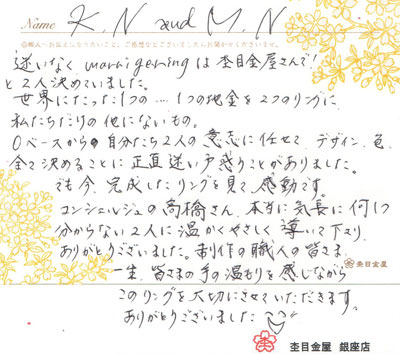 Name K.N and M.N
◎職人へお伝えしたいこと、ご感想などございましたらお聞かせくださいませ。
迷いなく marrigering は杢目金屋さんで!
と2人決めていました。
世界にたった1つの…1つの地金を2つのリングに
私たちだりの他にないもの。
0ベースから自分たち2人の意志に任せて、デザイン、色、
全て決めることに正直迷い戸惑うことがありました。
でも今、完成したリングを見て感動です。
コンシェルジュの高橋さん、本当に気長に何1つ
分からない2人に温かくやさしく導いて下り
ありがとうございました。制作の職人の皆さま
杢目金屋
一生、皆さまの手の温もりを感じながら
このリングを大切にさせていただきます。
ありがとうございました
杢目金屋 銀座店